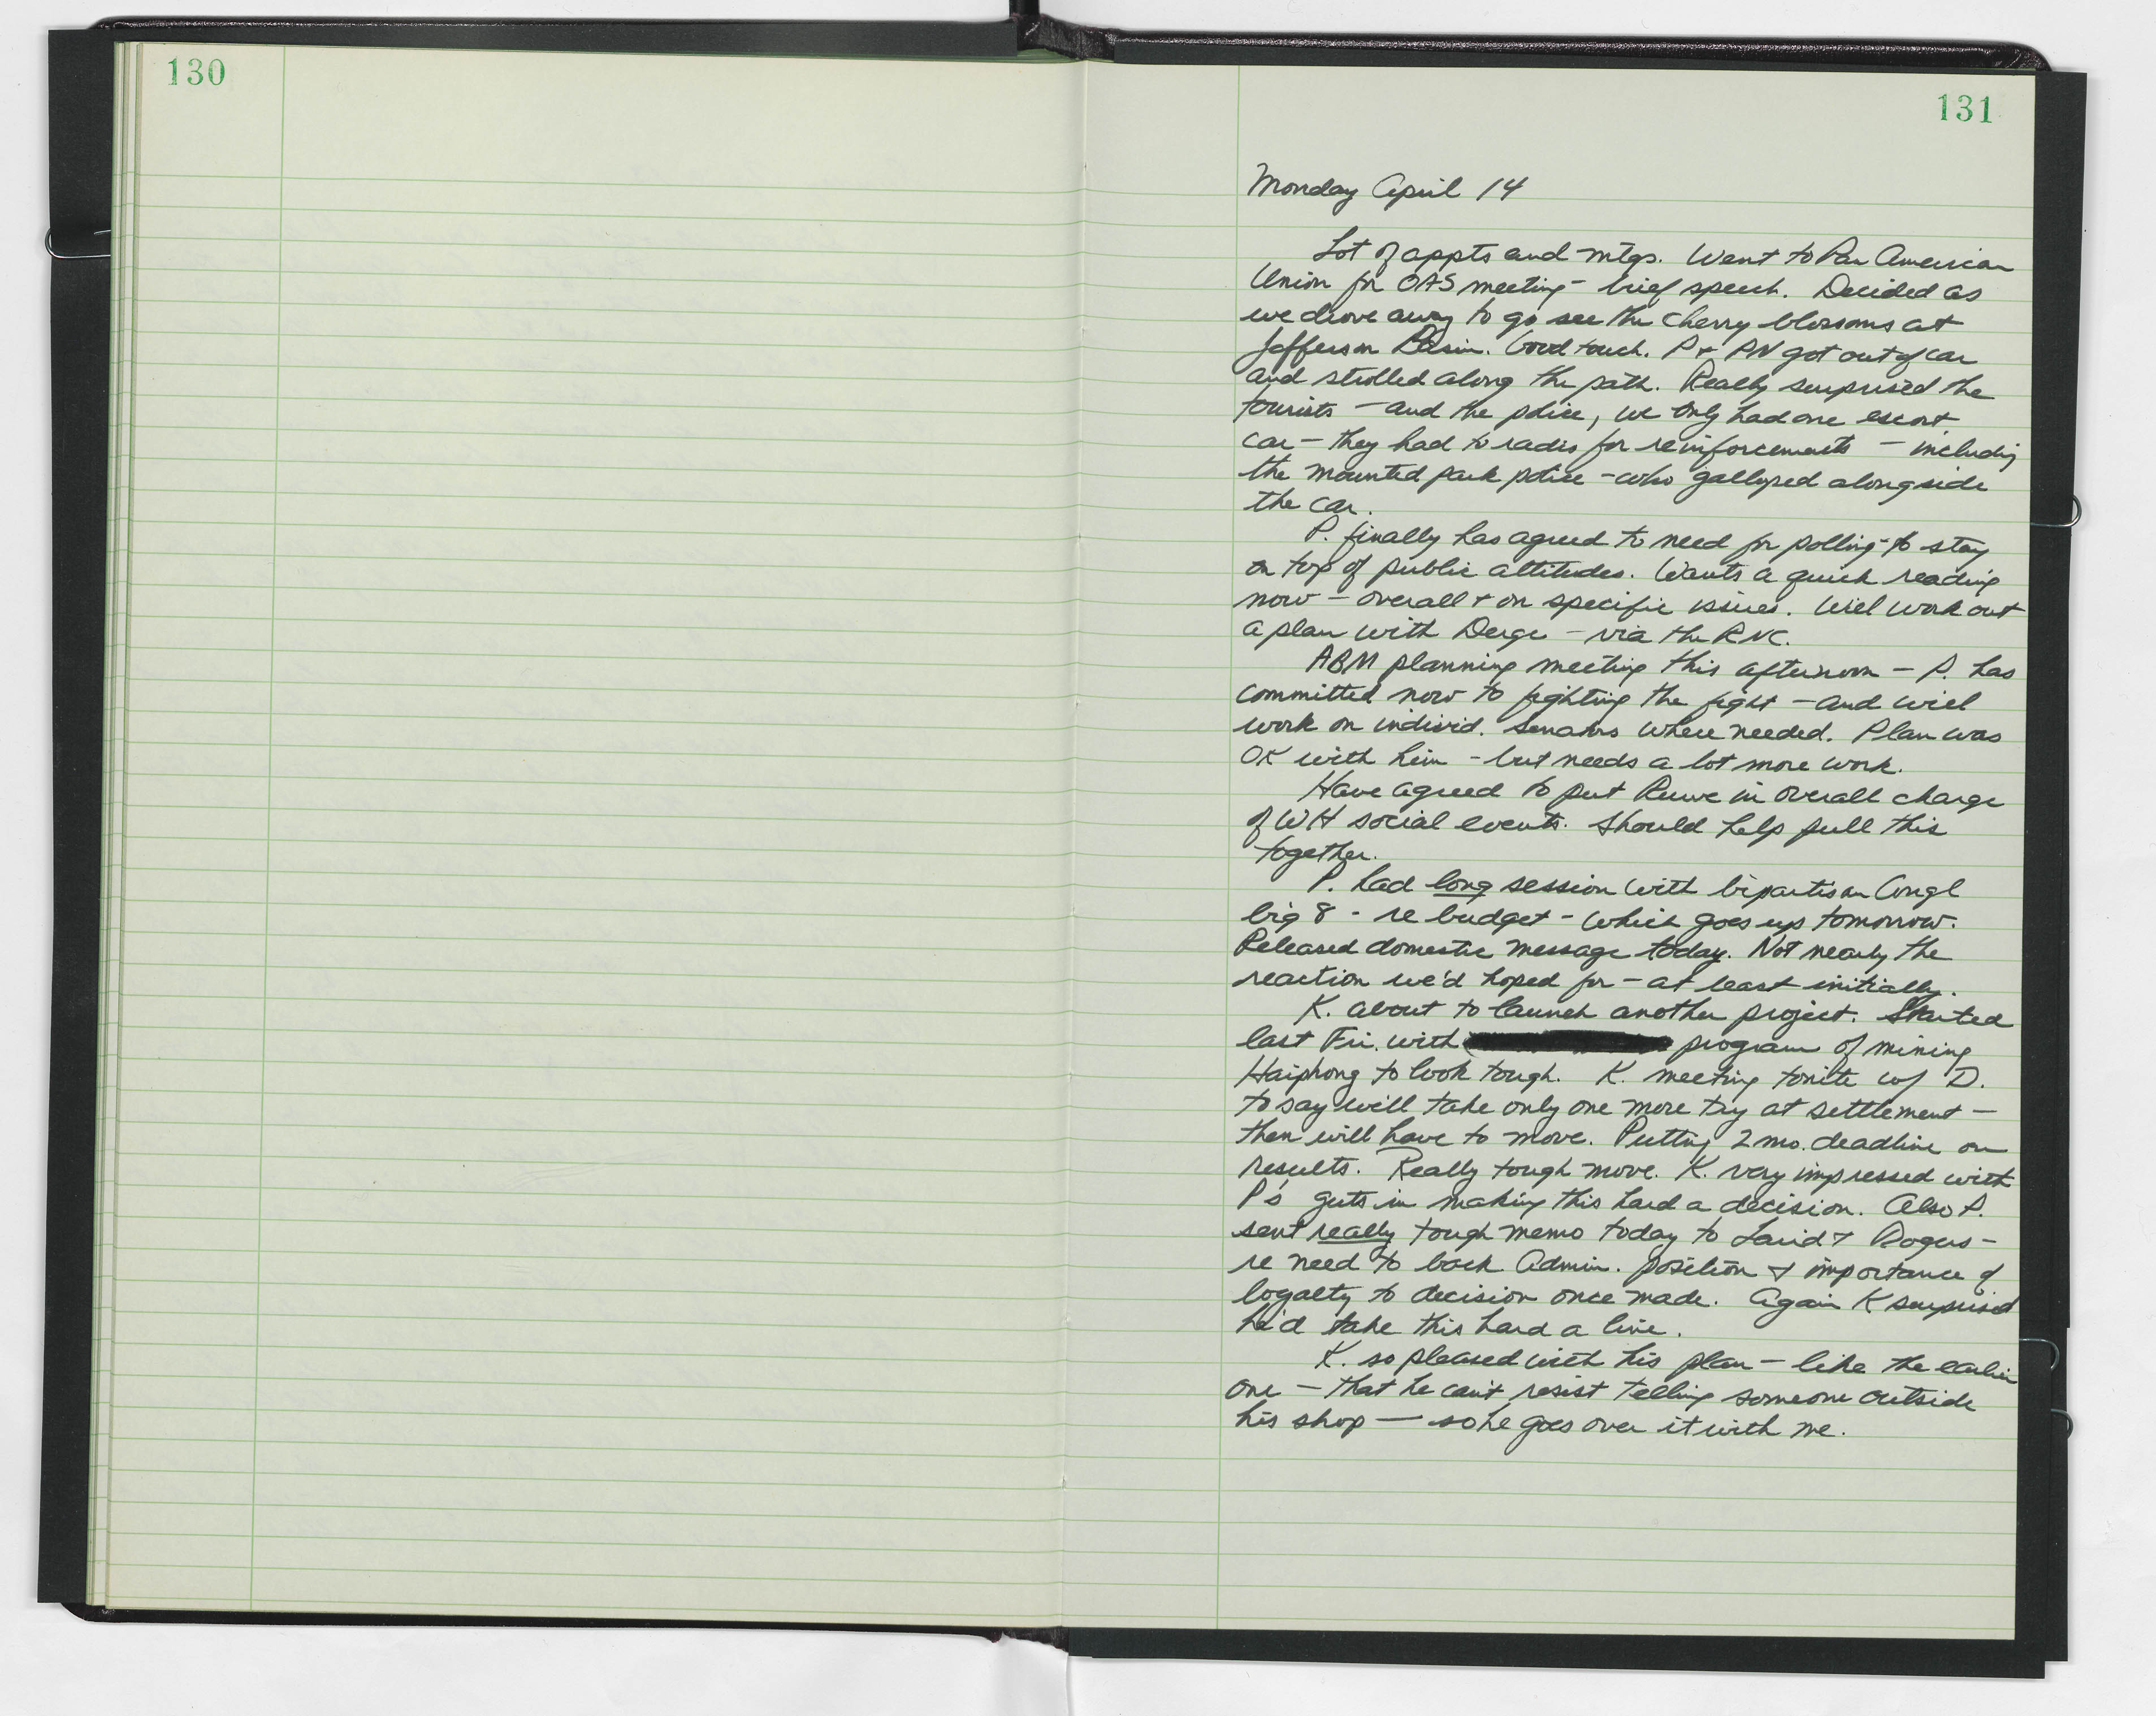 130
131
Monday April 14
Lot of appts and mtgs. Went to Pan American
Union for OAS meeting - brief speech. Decided as
we drove away to go see the cherry blossoms at
Jefferson Basin. Good touch. P + PN got out of car
and strolled along the path. Really surprised the
tourists - and the police, we only had one escort
car - they had to radio for reinforcements - including
the mounted park police - who galloped alongside
the car.
P. finally has agreed to need for polling - to stay
on top of public attitudes. Wants a quick reading
now - overall + on specific issues. Will work out
a plan with Derge - via the RNC.
ABM planning meeting this afternoon - P. has
committed now to fighting the fight - and will
work on individ. Senators where needed. Plan was
OK with him - but needs a lot more work.
Have agreed to put Ruwe in overall charge
of WH social events. Should help pull this
together.
P. had long session with bipartisan Congl
big 8 - re budget - which goes up tomorrow.
Released domestic message today. Not nearly the
reaction we'd hoped for - at least initially.
K. about to launch another project. Started
last Fri. with program of mining
Haiphong to look tough. K. meeting tonite w/ D.
to say we'll take only one more try at settlement -
then will have to move. Putting 2 mo. deadline on
results. Really tough move. K. very impressed with
P's guts in making this hard a decision. Also P.
sent really tough memo today to Laird + Rogers -
re need to back Admin. position + importance of
loyalty to decision once made. Again K surprised
he'd take this hard a line.
K. so pleased with his plan - like the earlier
one - that he can't resist telling someone outside
his shop - so he goes over it with me.